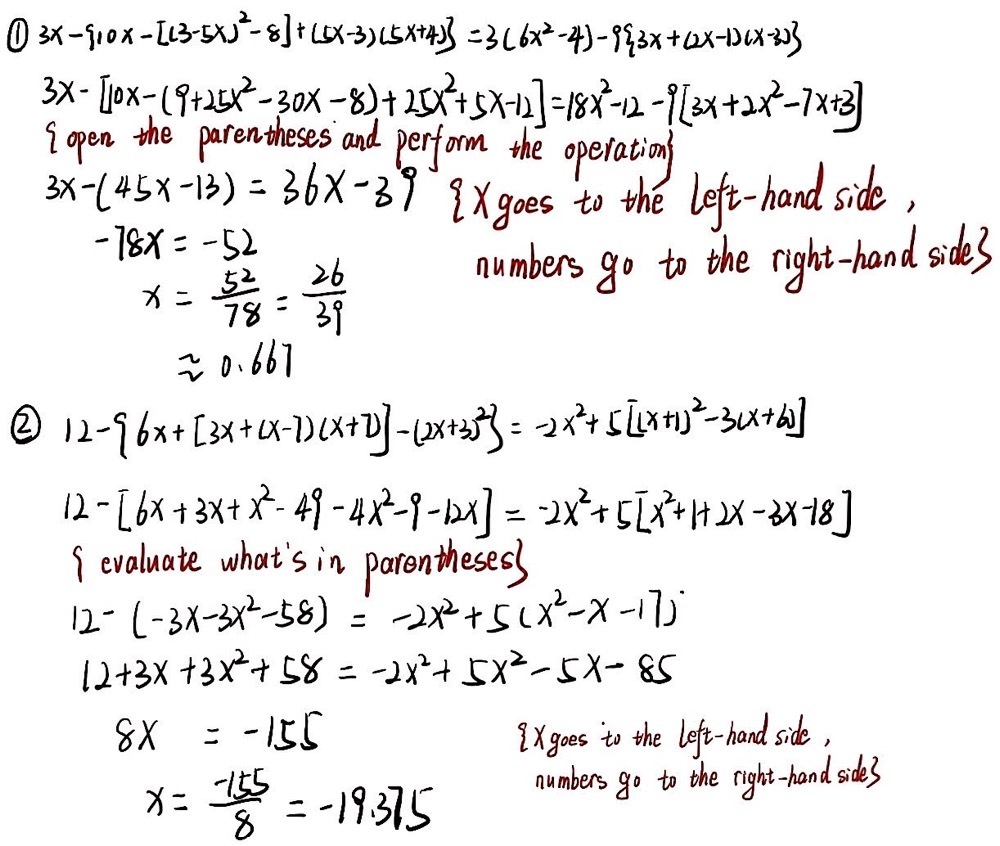 ① 3x-{10x-[(3-5x)²-8]+(5x-3)(5x+4)}=3(6x²-4)-9{3x+(2x-1)(x-3)}
3x-[10x-(9+25x²-30x-8)+25x²+5x-12]=18x²-12-9[3x+2x²-7x+3]
{open the parentheses and perform the operation}
3x-(45x-13)=36x-39 {X goes to the left-hand side,
numbers go to the right-hand side}
-78x=-52
x=52/78=26/39
≈0.667
② 12-{6x+[3x+(x-7)(x+7)]-(2x+3)²}=-2x²+5[(x+1)²-3(x+6)]
12-[6x+3x+x²-49-4x²-9-12x]=-2x²+5[x²+1+2x-3x-18]
{evaluate what's in parentheses}
12-(-3x-3x²-58)=-2x²+5(x²-x-17)
12+3x+3x²+58=-2x²+5x²-5x-85
8x=-155 {X goes to the left-hand side,
numbers go to the right-hand side}
x=-155/8=-19.375